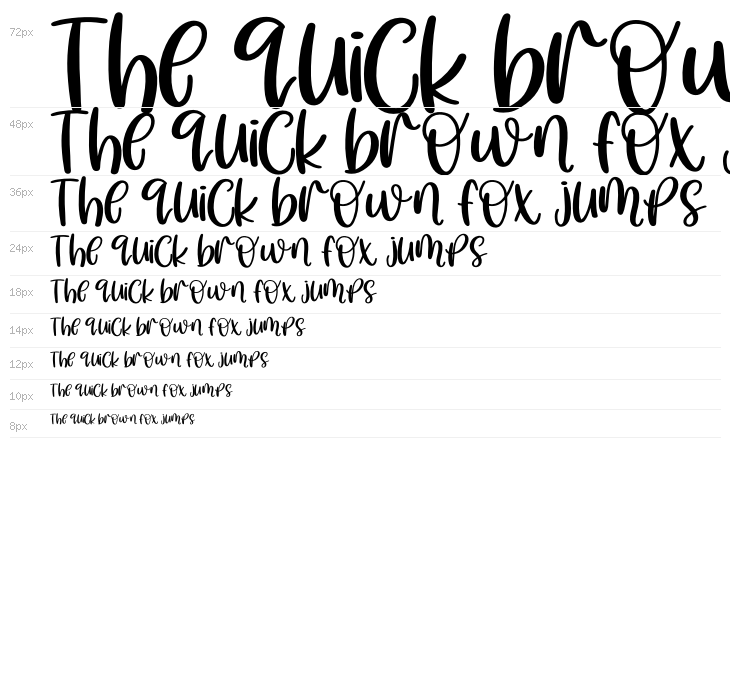 72px The quick brow
48px The quick brown fox
36px The quick brown fox jumps
24px The quick brown fox jumps
18px The quick brown fox jumps
14px The quick brown fox jumps
12px The quick brown fox jumps
10px The quick brown fox jumps
8px The quick brown fox jumps